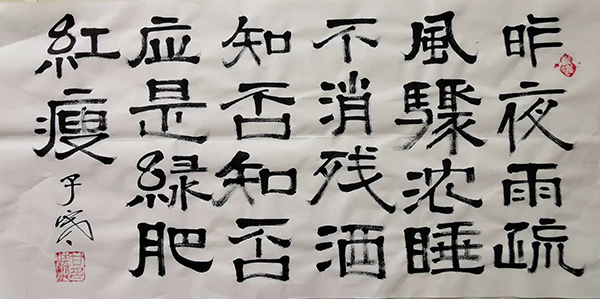 昨夜雨疏
風驟浓睡
不消残酒
知否知否
应是緑肥
紅瘦